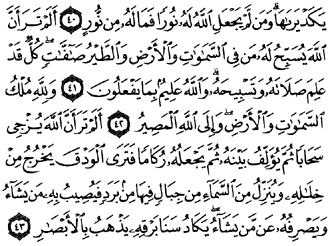 يَكَدْ يَرَىٰهَا ۗ وَمَن لَّمْ يَجْعَلِ ٱللَّهُ لَهُۥ نُورًا فَمَا لَهُۥ مِن نُّورٍ ٤٠ أَلَمْ تَرَ أَنَّ
ٱللَّهَ يُسَبِّحُ لَهُۥ مَن فِى ٱلسَّمَٰوَٰتِ وَٱلْأَرْضِ وَٱلطَّيْرُ صَٰٓفَّٰتٍ ۖ كُلٌّ قَدْ
عَلِمَ صَلَاتَهُۥ وَتَسْبِيحَهُۥ ۗ وَٱللَّهُ عَلِيمٌۢ بِمَا يَفْعَلُونَ ٤١ وَلِلَّهِ مُلْكُ
ٱلسَّمَٰوَٰتِ وَٱلْأَرْضِ ۖ وَإِلَى ٱللَّهِ ٱلْمَصِيرُ ٤٢ أَلَمْ تَرَ أَنَّ ٱللَّهَ يُزْجِى
سَحَابًا ثُمَّ يُؤَلِّفُ بَيْنَهُۥ ثُمَّ يَجْعَلُهُۥ رُكَامًا فَتَرَى ٱلْوَدْقَ يَخْرُجُ مِنْ
خِلَٰلِهِۦ وَيُنَزِّلُ مِنَ ٱلسَّمَآءِ مِن جِبَالٍ فِيهَا مِنۢ بَرَدٍ فَيُصِيبُ بِهِۦ مَن يَشَآءُ
وَيَصْرِفُهُۥ عَن مَّن يَشَآءُ ۖ يَكَادُ سَنَا بَرْقِهِۦ يَذْهَبُ بِٱلْأَبْصَٰرِ ٤٣